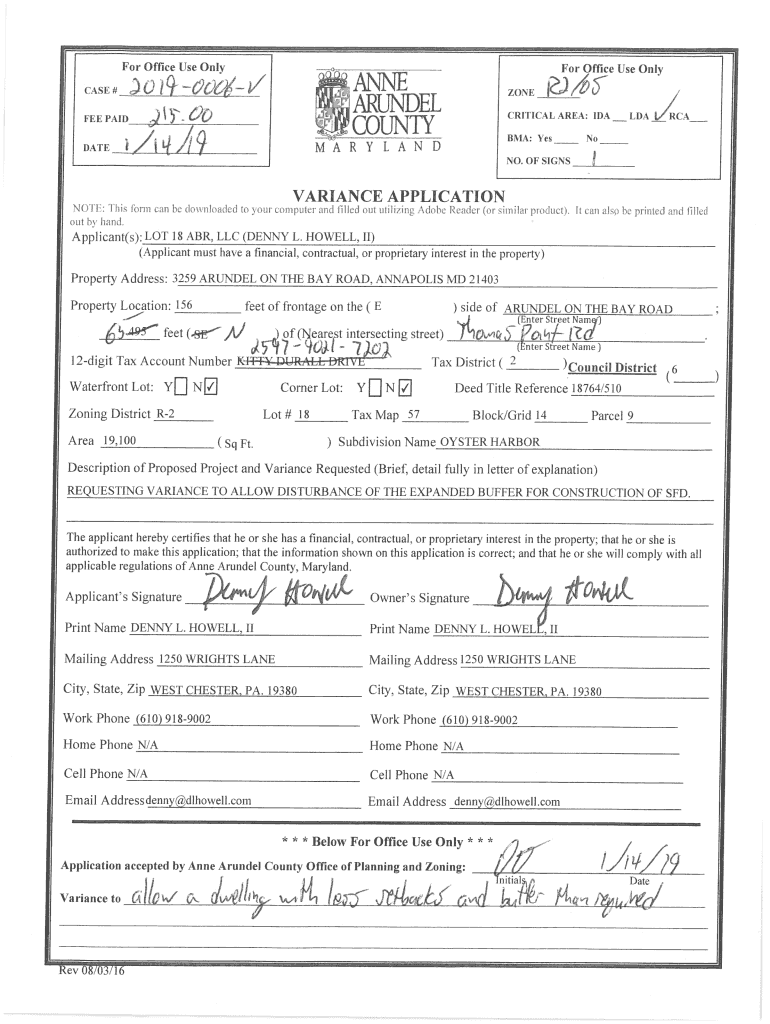 For Office Use Only
CASE # 2019-0006-V
FEE PAID 215.00
DATE 1/14/19
ANNE
ARUNDEL
COUNTY
MARYLAND
For Office Use Only
ZONE R2/OS
CRITICAL AREA: IDA LDA ✓ RCA
BMA: Yes No
NO. OF SIGNS 1
VARIANCE APPLICATION
NOTE: This form can be downloaded to your computer and filled out utilizing Adobe Reader (or similar product). It can also be printed and filled
out by hand.
Applicant(s): LOT 18 ABR, LLC (DENNY L. HOWELL, II)
(Applicant must have a financial, contractual, or proprietary interest in the property)
Property Address: 3259 ARUNDEL ON THE BAY ROAD, ANNAPOLIS MD 21403
Property Location: 156 feet of frontage on the ( E ) side of ARUNDEL ON THE BAY ROAD ;
(Enter Street Name)
65 495 feet ( SE N ) of (Nearest intersecting street) Thomas Point Rd .
(Enter Street Name )
2597-9021-7202
12-digit Tax Account Number KITTY DURALL DRIVE Tax District ( 2 ) Council District ( 6 )
Waterfront Lot: Y N ✓ Corner Lot: Y N ✓ Deed Title Reference 18764/510
Zoning District R-2 Lot # 18 Tax Map 57 Block/Grid 14 Parcel 9
Area 19,100 ( Sq Ft. ) Subdivision Name OYSTER HARBOR
Description of Proposed Project and Variance Requested (Brief, detail fully in letter of explanation)
REQUESTING VARIANCE TO ALLOW DISTURBANCE OF THE EXPANDED BUFFER FOR CONSTRUCTION OF SFD.
The applicant hereby certifies that he or she has a financial, contractual, or proprietary interest in the property; that he or she is
authorized to make this application; that the information shown on this application is correct; and that he or she will comply with all
applicable regulations of Anne Arundel County, Maryland.
Applicant's Signature Denny Howell Owner's Signature Denny Howell
Print Name DENNY L. HOWELL, II Print Name DENNY L. HOWELL, II
Mailing Address 1250 WRIGHTS LANE Mailing Address 1250 WRIGHTS LANE
City, State, Zip WEST CHESTER, PA. 19380 City, State, Zip WEST CHESTER, PA. 19380
Work Phone (610) 918-9002 Work Phone (610) 918-9002
Home Phone N/A Home Phone N/A
Cell Phone N/A Cell Phone N/A
Email Address denny@dlhowell.com Email Address denny@dlhowell.com
* * * Below For Office Use Only * * *
Application accepted by Anne Arundel County Office of Planning and Zoning: 1/14/19
Initials Date
Variance to allow a dwelling with less setbacks and buffer than required
Rev 08/03/16